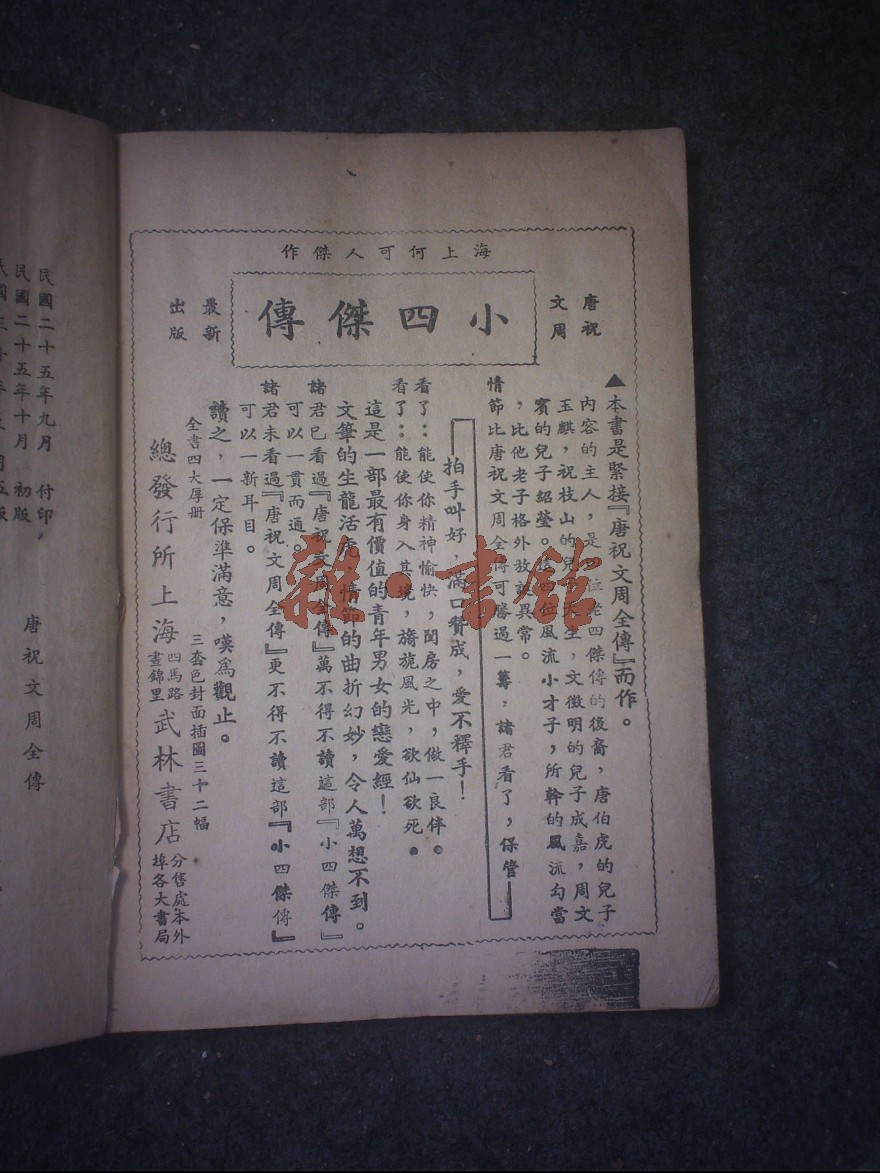 海上何可人傑作
唐祝
文周
小四傑傳
最新
出版
▲本書是緊接『唐祝文周全傳』而作。
內容的主人，是四位老四傑傳的後裔，唐伯虎的兒子
玉麒，祝枝山的兒子天生，文徵明的兒子成嘉，周文
賓的兒子紹瑩。這四位風流小才子，所幹的風流勾當
，比他老子格外放誕異常。
情節比唐祝文周全傳可勝過一籌，諸君看了，保管
拍手叫好，滿口贊成，愛不釋手！
看了：能使你精神愉快，閨房之中，做一良伴。
看了：能使你身入其境，旖旎風光，欲仙欲死。
這是一部最有價值的青年男女的戀愛經！
文筆的生龍活虎，情節的曲折幻妙，令人萬想不到。
諸君已看過『唐祝文周全傳』萬不得不讀這部『小四傑傳』
可以一貫而通。
諸君未看過『唐祝文周全傳』更不得不讀這部『小四傑傳』
可以一新耳目。
讀之，一定保準滿意，嘆為觀止。
全書四大厚冊
三套色封面插圖三十二幅
總發行所上海
四馬路
晝錦里
武林書店
分售處本外
埠各大書局
民國二十五年九月 付印，
民國二十五年十月 初版
五版
唐祝文周全傳
雜·書館